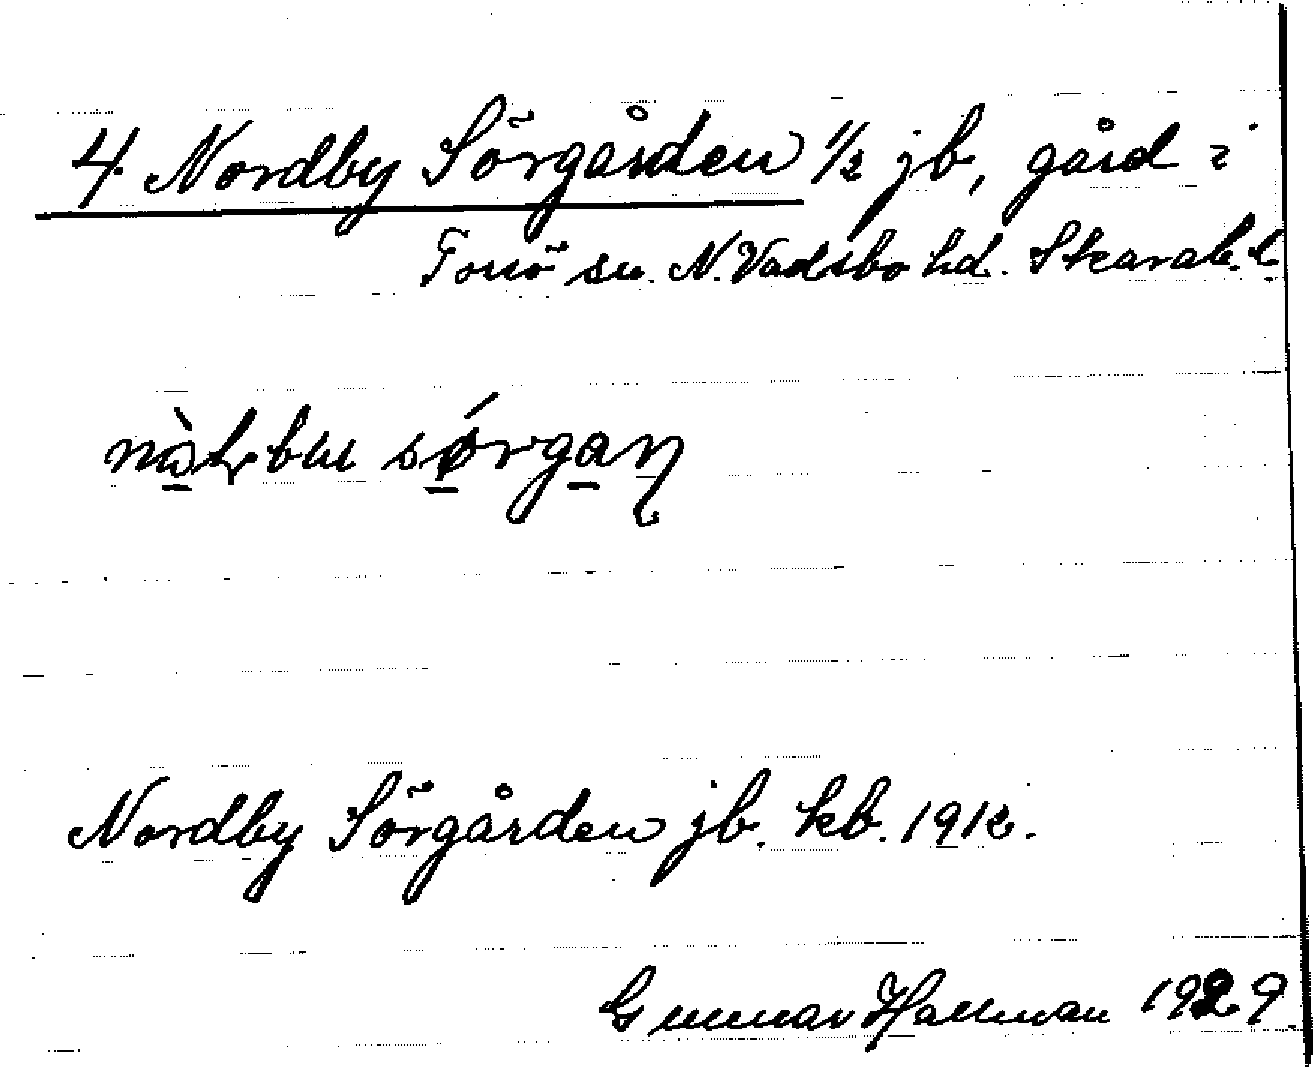 4. Nordby Sörgården 1/2 jb, gård i
Torsö sn. N. Vadsbo hd. Skarab. l.
sørgaɳ
Nordby Sörgården jb. kb. 1912.
Gunnar Hallman 1929